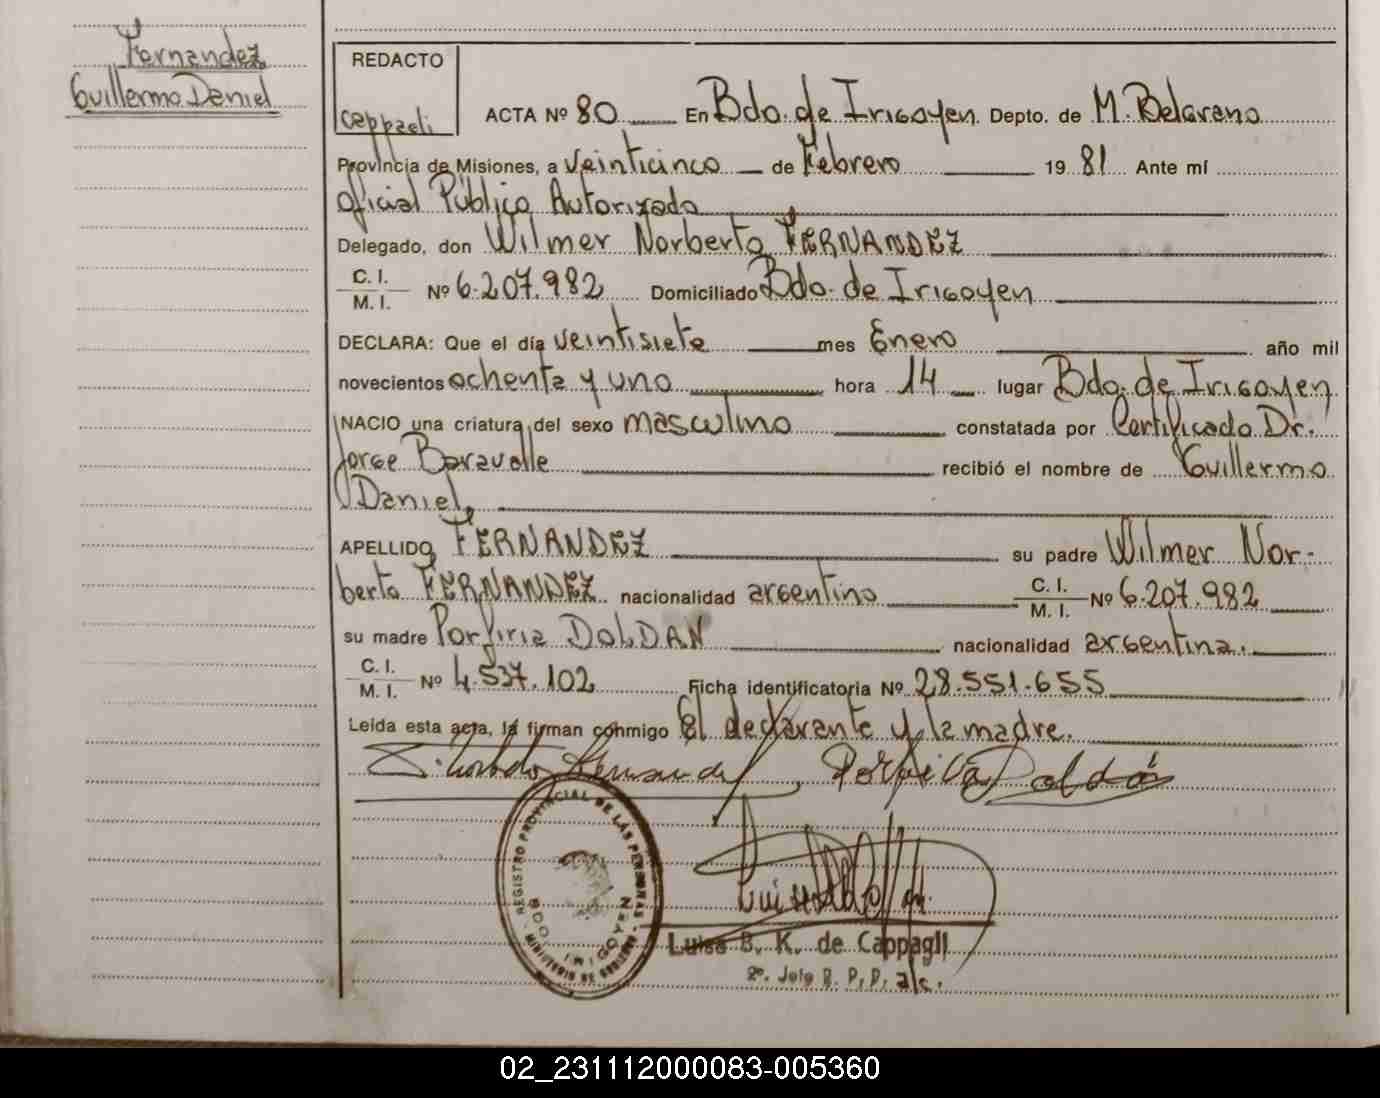 Fernandez
Guillermo Daniel
REDACTO
Cappagli
ACTA Nº 80 En Bdo. de Irigoyen. Depto. de M. Belgrano
Provincia de Misiones, a veinticinco de Febrero 19 81 Ante mí
Oficial Público Autorizado
Delegado, don Wilmer Norberto FERNANDEZ
C. I.
M. I. Nº 6.207.982 Domiciliado Bdo. de Irigoyen
DECLARA: Que el día veintisiete mes Enero año mil
novecientos ochenta y uno hora 14 lugar Bdo. de Irigoyen
NACIO una criatura del sexo masculino constatada por Certificado Dr.
Jorge Baravalle recibió el nombre de Guillermo
Daniel,
APELLIDO FERNANDEZ su padre Wilmer Nor-
berto FERNANDEZ nacionalidad argentino C. I.
M. I. Nº 6.207.982
su madre Porfiria DOLDAN nacionalidad argentina.
C. I.
M. I. Nº 4.537.102 Ficha identificatoria Nº 28.551.655
Leida esta acta, la firman conmigo el declarante y la madre.
Porfiria Doldán
REGISTRO PROVINCIAL DE LAS PERSONAS
MINISTERIO DE GOBIERNO
BDO. IRIGOYEN
Luisa B. K. de Cappagli
2º. Jefe R. P. P. a/c.
02_231112000083-005360